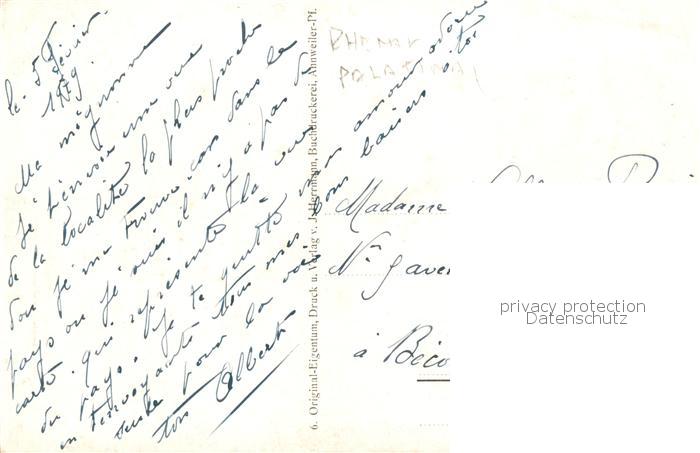 le 5 Février
1919.
Ma mignonne
je t'envoie une vue
de la localité la plus proche
dou je me trouve car dans le
pays ou je suis il n'y a pas de
carte qui représente la vue
du pays. Je te quitte mon amour adorée
en t'envoyant tous mes bons baisers a toi
seule pour la vie
ton Albert
6. Original-Eigentum, Druck u. Verlag v. J. Herrmann, Buchdruckerei, Annweiler-Pf.
RHENAN
PALATINAT
Madame
à
privacy protection
Datenschutz